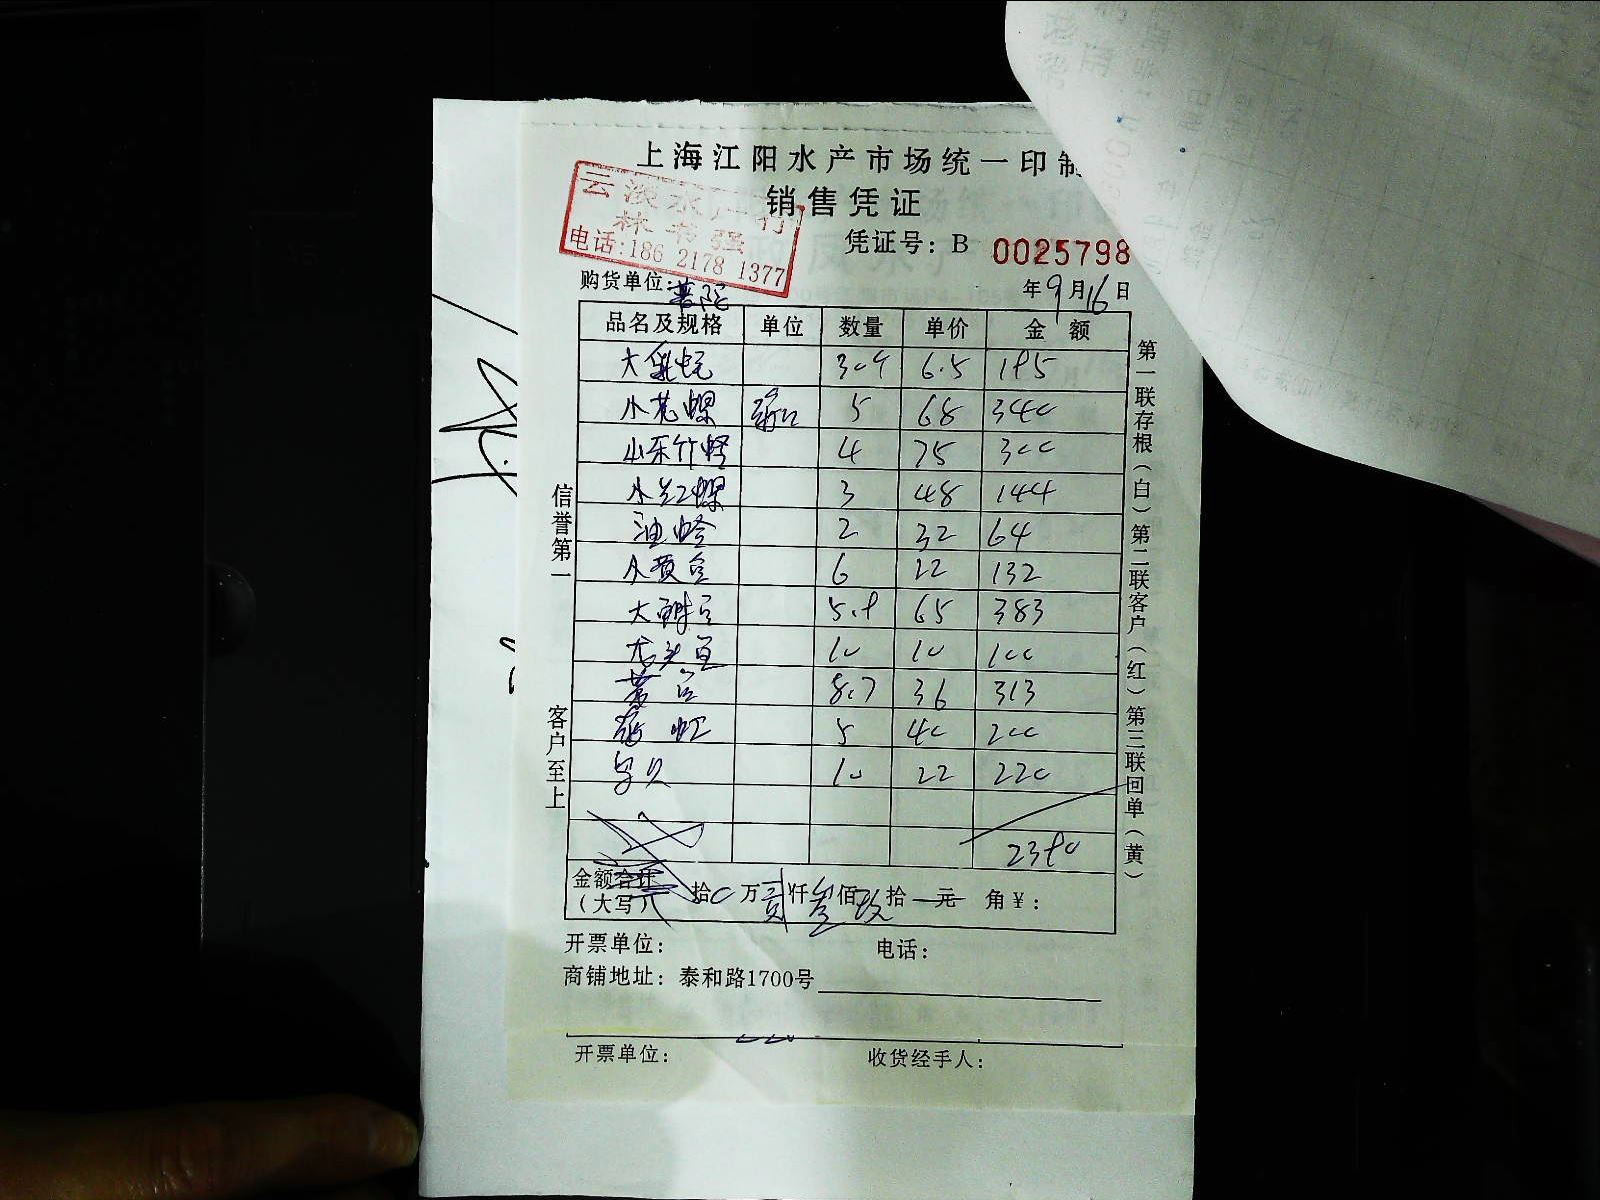 上海江阳水产市场统一印制
销售凭证
云淡水产行
林书强
电话:186 2178 1377
凭证号: B 0025798
购货单位: 普陀 年9月16日
品名及规格 单位 数量 单价 金额
大 6.5 195
小花螺 5 68 340
山东竹蛏 4 75 300
小红螺 3 48 144
油蛤 2 32 64
小黄鱼 6 22 132
大 5.9 65 383
龙头鱼 10 10 100
8.7 36 313
5 40 200
10 22 220
2390
金额合计(大写) 拾0万贰仟叁佰玖拾一元 角¥:
开票单位: 电话:
商铺地址: 泰和路1700号
开票单位: 收货经手人:
信誉第一
客户至上
第一联存根(白)第二联客户(红)第三联回单(黄)